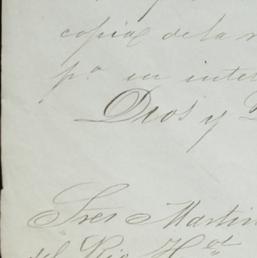 copia de la
p.ª su intel
Dios y
Sres Martin
del Rio H.os